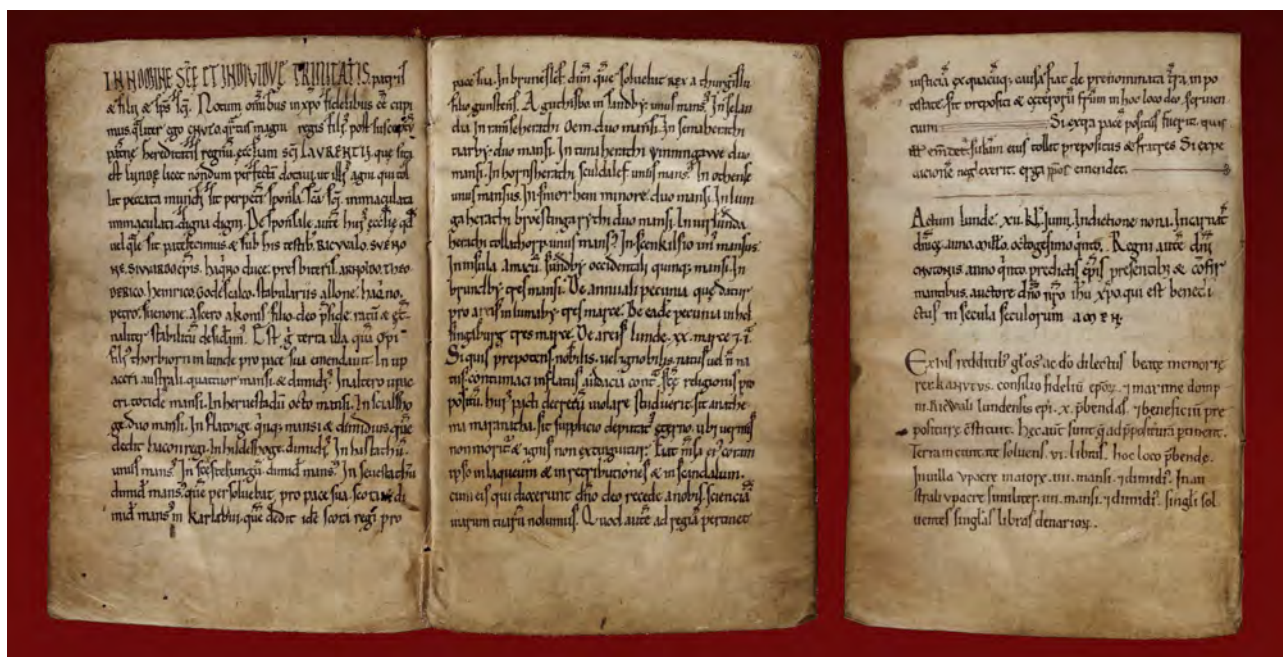 IN NOMINE SCĒ ET INDIVIDVE TRINITATIS. patris
& filii & sp̄s sc̄i. Notum om̄ibus in xp̄o fidelibus ēē cupi
mus. qualiter ego CNVTO. q̄rtus magni regis filiꝰ post susceptū
pat̄ne hereditatis regnū. eccl̄iam sc̄i LAVRENTII. que sita
est LVNDE licet nondum perfectā dotavi. ut illiꝰ agni qui tol
lit peccata mundi. sit perpetī sponsa. sc̄a sc̄i. immaculata
immaculati. digna digni. De sponsale autē huiꝰ eccl̄ie qd̄
uel q̄le sit patefecimus & sub his testibꝰ. RICVVALO. SVENO
NE. SIVVARDO ep̄is. haq̄no duce. presbiteris. ARNOLDO. THEO
DERICO. heinrico. Godescalco. stabulariis allone. haq̄no.
petro. suenone. Ascero akonis filio. deo p̄side. ratū & et̄
naliter stabilitū
Est ḡ terra illa quā Opi
filiꝰ thorbiorn in lunde pro pace sua emendauit. In up
aceri australi. quatuor mansi. & dimidiꝰ. In altero upac
eri. totidē mansi. In heruestadū octo mansi. In scialsho
ge. duo mansi. In flatoige. quinq; mansi & dimidius. quē
dedit hacon regi. In hildeshoge. dimidiꝰ. In hastachū.
unus mansꝰ. In scestelungū. dimidꝰ mansꝰ. In seuestachū
dimidꝰ mansꝰ. que persoluebat pro pace sua. scora & di
midꝰ mansꝰ in karlebui. quē dedit idē scora regi pro
pace sua. In bruneslef dim̄. que soluebat rex a thurgislu
filio gunsteni. A guthisbo in sandby. unus mansꝰ. In selan
dia. In ramseherathi Oem. duo mansi. In semaherathi
tiarby. duo mansi. In tunaherathi vinningavve duo
mansi. In hornsherathi sculdalef. unus mansꝰ. In othense
unus mansus. In smorhem minore. duo mansi. In lum
gaherathi broestingarythi duo mansi. In uirfundꝰ
herathi tollathorp. unus mansꝰ. In scenkilsio iiii mansus.
In insula amacū. sundby occidentali quinq; mansi. In
brundby tres mansi. De annuali pecunia que datur
pro areis in lumaby. tres marce. De eadē pecunia in hel
singaburg tres marce. De areis lunde. xx. marce ⁊ i.
Si quis prepotens. nobilis. uel ignobilis. natus uel n̄ na
tus. contumaci inflatus audacia cont̄ sc̄e religionis pro
positū. huiꝰ pacti decretū uiolare studuerit. sit anathe
ma maranatha. sit supplicio deputatꝰ et̄no. ubi uermis
non moritꝰ & ignis non extinguitur. Fiat m̄sa eiꝰ coram
ipso in laqueum & in retributiones & in scandalum.
cum eis qui dixerunt dn̄o deo recede a nobis. scienciā
uiarum tuarū nolumus. Quod autē ad regiā pertinet
iusticiā ex quacūq; causa fiat de prenominata t̄ra. in po
testate. sit prepositi & ceterorū fr̄m in hoc loco deo seruien
tium Si extra pacē positus fuerit. quis
emat. suꝰam eius tollat prepositus & fratres Si expe
dicione neglexerit. erga
emendet.
Actum lunde. xii. kl̄. Iunii. Indictione nona. Incarnat̄
dn̄ice. anno millō. octogesimo q̄nto. Regni autē dn̄i
CNVTONIS. anno q̄nto. predictis ep̄is presentibꝰ & cōfir
mantibus. auctore dn̄o nr̄o ih̄u xp̄o. qui est benedi
ctus in secula seculorum AMEN.
Ex iusꝰ redditibꝰ gl̄osꝰ ac dō dilectus beate memorie
rex KANVTVS. consilio fideliū ep̄orꝝ. ⁊ maxime domp
ni. RICWALI lundensis ep̄i. x. p̄bendas. ⁊ beneficiū pre
positure cōstituit. Hec aut̄ sunt q̄ ad p̄posituram p̄tinent.
Terra
soluens. vi. libras. hoc loco p̄bende.
In uilla vpacre maiore. iiii. mansi. ⁊ dimidꝰ. In au
strali vpacre similiter. iiii. mansi. ⁊ dimidꝰ. singl̄i sol
uentes sinḡlas libras denariorꝝ.